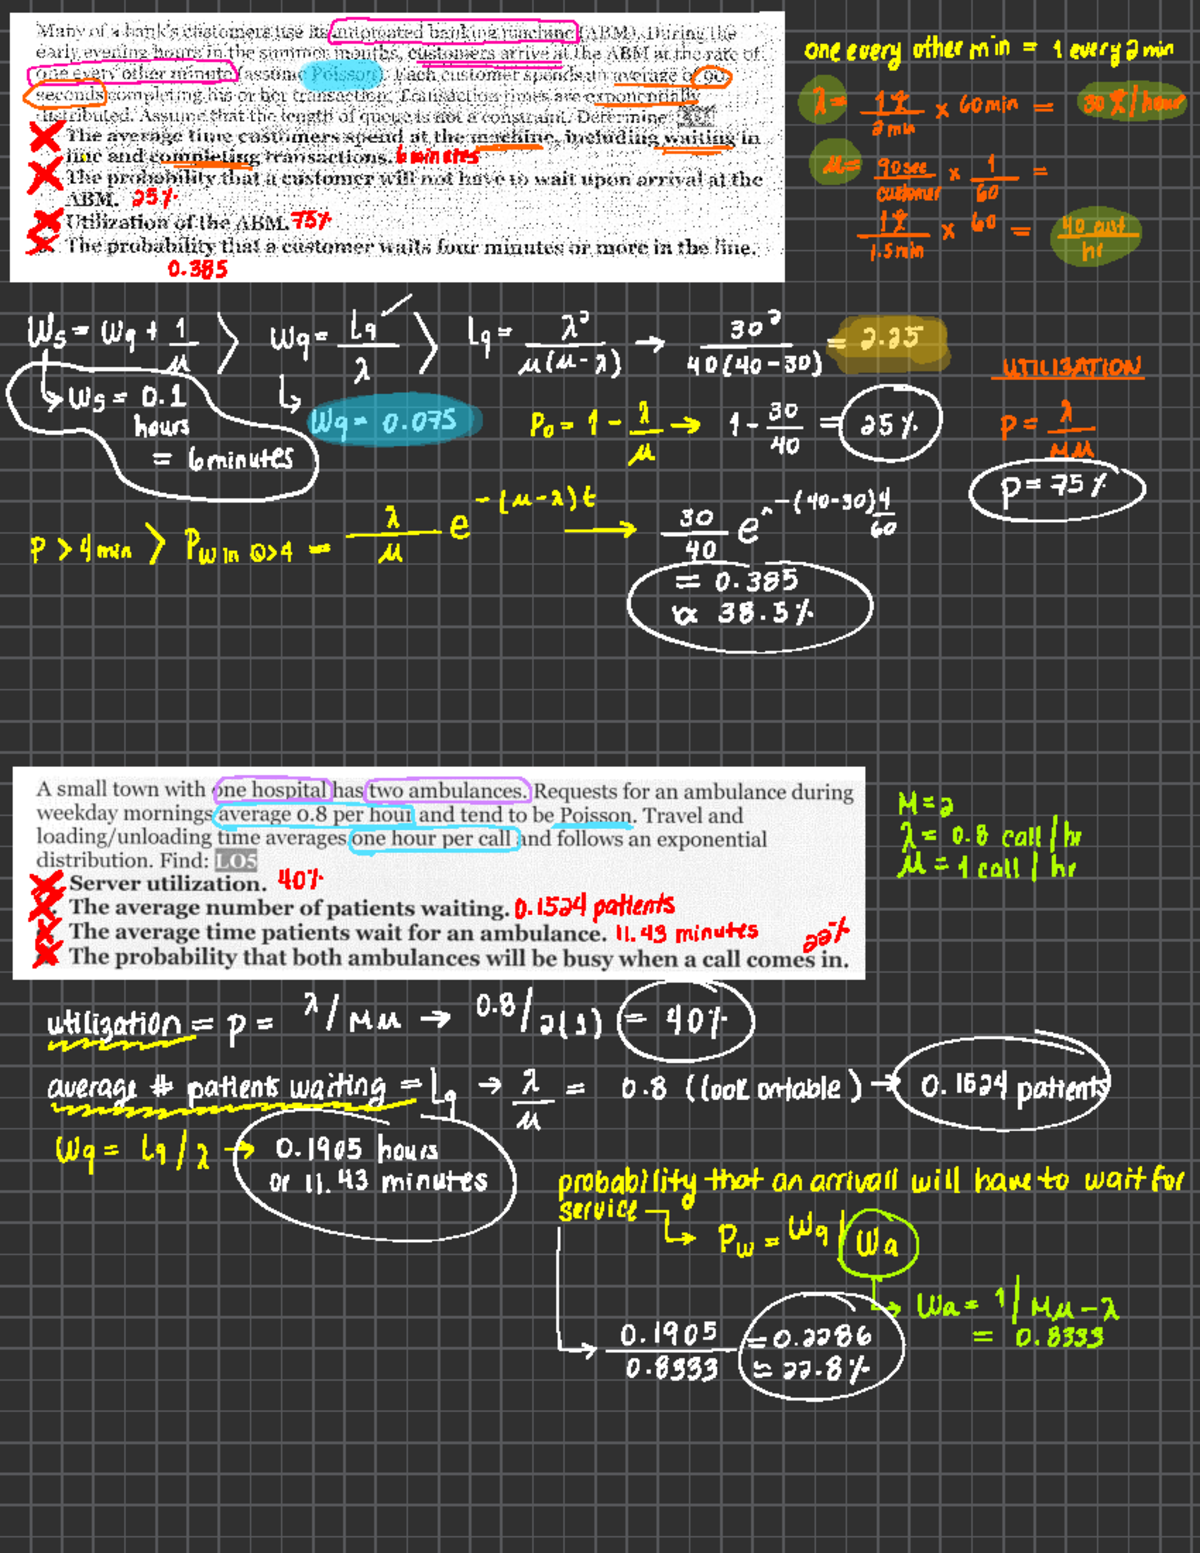 Many of a bank's customers use its automated banking machine (ABM). During the
early evening hours in the summer months, customers arrive at the ABM at the rate of
one every other minute (assume Poisson). Each customer spends an average of 90
seconds completing his or her transaction. Transaction times are exponentially
distributed. Assume that the length of queue is not a constraint. Determine:
The average time customers spend at the machine, including waiting in
line and completing transactions. 6 minutes
The probability that a customer will not have to wait upon arrival at the
ABM. 25%
Utilization of the ABM. 75%
The probability that a customer waits four minutes or more in the line.
0.385
one every other min = 1 every 2 min
λ = 1 / 2 min × 60 min = 30 / hour
μ = 90 sec / customer × 1/60 =
1 / 1.5 min × 60 = 40 cust / hr
Ws = Wq + 1/μ > Wq = Lq/λ > Lq = λ²/μ(μ-λ) → 30²/40(40-30) = 2.25
Ws = 0.1
hours
= 6 minutes
Wq = 0.075
P0 = 1 - λ/μ → 1 - 30/40 = 25%
UTILIZATION
P = λ/Mμ
P = 75%
P > 4 min > Pw in Q>4 = λ/μ e^-(μ-λ)t → 30/40 e^-(40-30)4/60
= 0.385
≈ 38.5%
A small town with one hospital has two ambulances. Requests for an ambulance during
weekday mornings average 0.8 per hour and tend to be Poisson. Travel and
loading/unloading time averages one hour per call and follows an exponential
distribution. Find: LO5
Server utilization. 40%
The average number of patients waiting. 0.1524 patients
The average time patients wait for an ambulance. 11.43 minutes
The probability that both ambulances will be busy when a call comes in. 22%
M = 2
λ = 0.8 call / hr
μ = 1 call / hr
utilization = P = λ/Mμ → 0.8/2(1) = 40%
average # patients waiting = Lq → λ/μ = 0.8 (look on table) → 0.1524 patients
Wq = Lq/λ → 0.1905 hours
or 11.43 minutes
probability that an arrivall will have to wait for
service → Pw = Wq / Wa
Wa = 1/Mμ-λ
= 0.8333
0.1905 / 0.8333 = 0.2286
≈ 22.8%